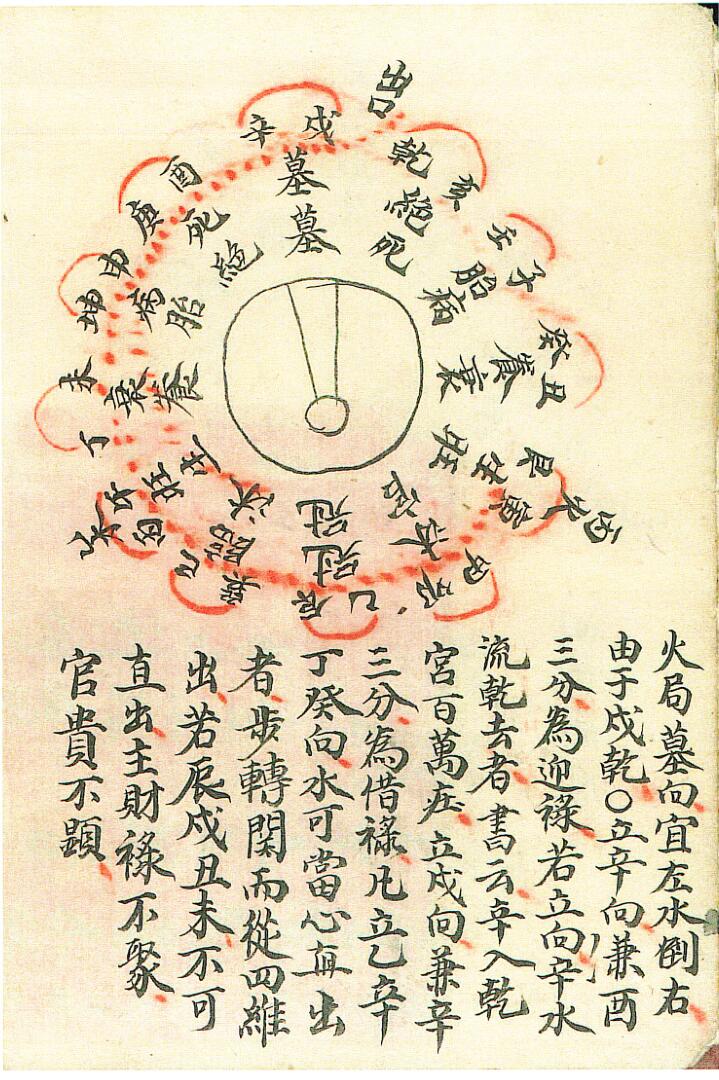 出口
辛戌
乾亥
壬子
癸丑
艮寅
丙火
甲卯
乙辰
巽巳
丙午
丁未
坤申
庚酉
墓
絕
胎
養
生
沐
冠
臨
旺
衰
病
死
墓
死
病
衰
旺
冠
沐
生
養
胎
絕
火局墓向宜左水倒右
由于戌乾〇立辛向兼酉
三分為迎祿若立向辛水
流乾去者書云辛入乾
宮百萬庄立戌向兼辛
三分為借祿凡立乙辛
丁癸向水可當心直出
者步轉関而從四維
出若辰戌丑未不可
直出主財祿不聚
官貴不顕